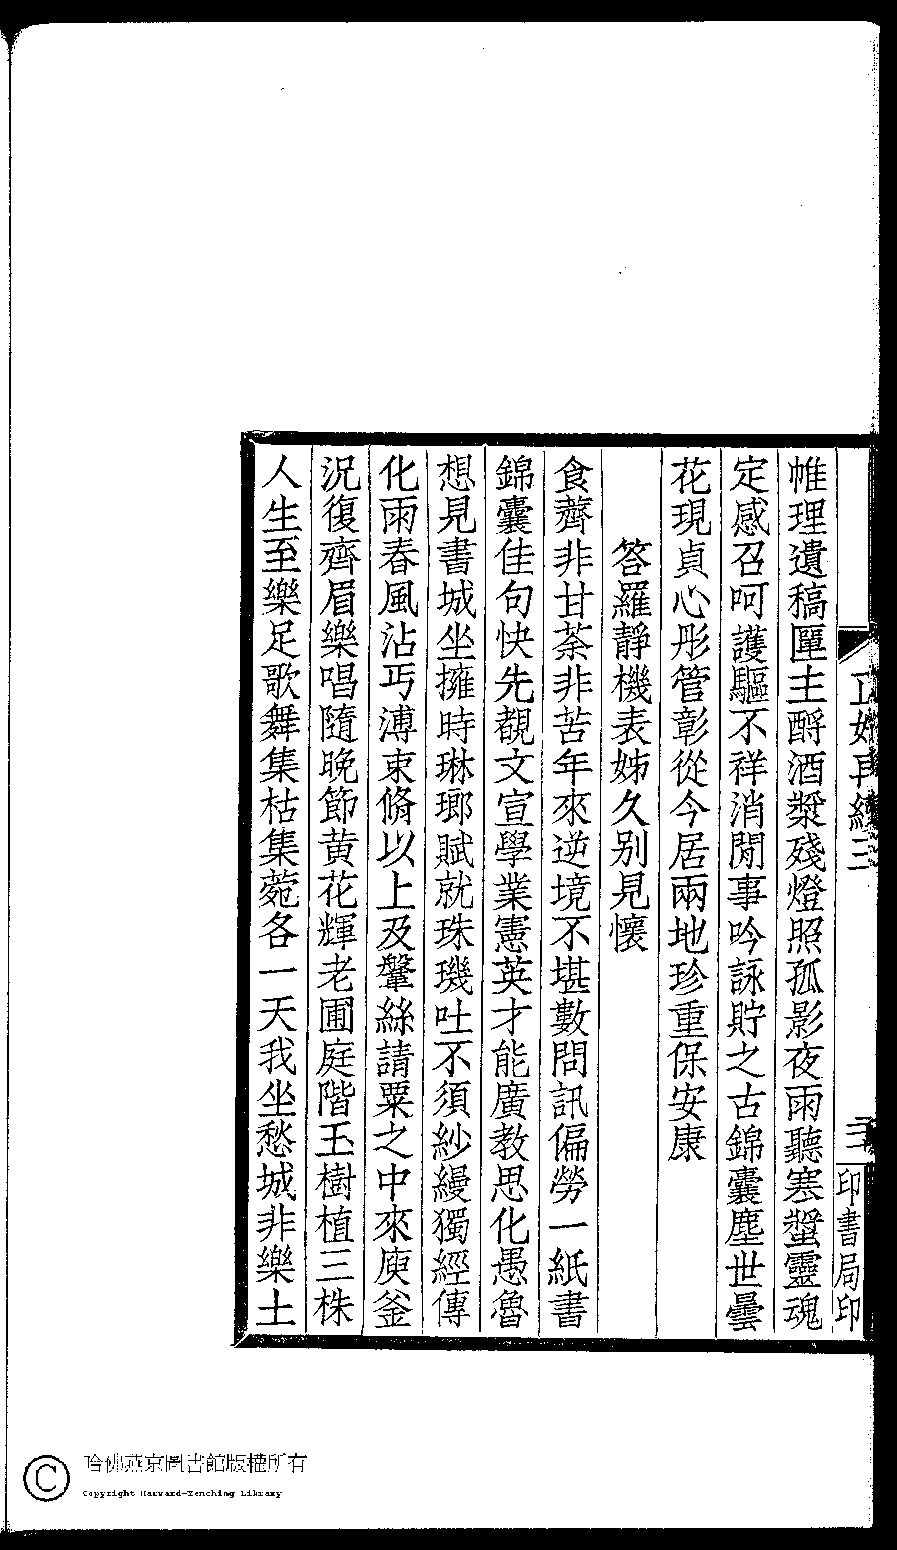 帷理遺稿匰主酹酒漿殘燈照孤影夜雨聽寒螿靈魂
定感召呵護驅不祥消閒事吟詠貯之古錦囊塵世曇
花現貞心彤管彰從今居兩地珍重保安康
答羅靜機表姊久别見懷
食薺非甘荼非苦年來逆境不堪數問訊偏勞一紙書
錦囊佳句快先覩文宣學業憲英才能廣教思化愚魯
想見書城坐擁時琳瑯賦就珠璣吐不須紗縵獨經傳
化雨春風沾丐溥束脩以上及鞶絲請粟之中來庾釜
況復齊眉樂唱隨晚節黄花輝老圃庭階玉樹植三株
人生至樂足歌舞集枯集菀各一天我坐愁城非樂土
正始再續三
二
印書局印
哈佛燕京圖書館版權所有
Copyright Harvard-Yenching Library